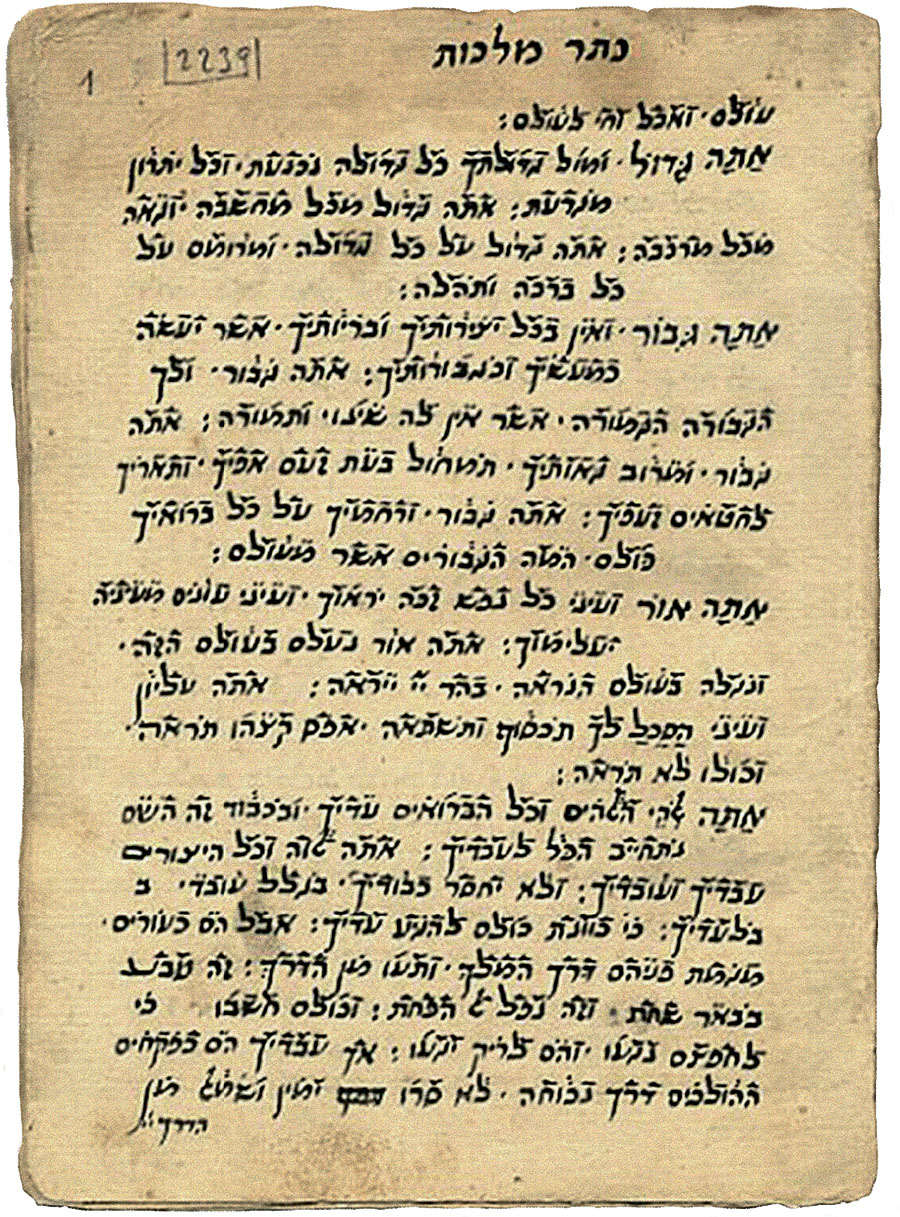 1
2239
כתר מלכות
עולם · ואכל וחי לעולם:
אַתָּה גָּדוֹל · ומול גדולתך כל גדולה נכנעת · וכל יתרון
מגרעת: אתה גדול מכל מחשבה יוגאה
מכל מרכבה: אתה גדול על כל גדולה · ומרומם על
כל ברכה ותהלה:
אַתָּה גִּבּוֹר · ואין בכל יצירותיך ובריותיך · אשר יעשה
כמעשיך וכגבורותיך: אתה גבור · ולך
הגבורה הגמורה · אשר אין לה שינוי ותמורה: אתה
גבור · ומרוב גאותיך · תמחול בעת זעם אפיך · ותאריך
לחטאים זעפיך: אתה גבור · ורחמיך על כל ברואיך
כולם · המה הגבורים אשר מעולם:
אַתָּה אוֹר ועיני כל נפש זכה יראוך · ועיני עונים מעיניה
יעלימוך: אתה אור נעלם בעולם הזה ·
ונגלה בעולם הנראה · בהר יי ייראה: אתה עליון
ועיני הַסֵכֶל לך תכסוף ותשתאה · אפס קצהו תראה ·
וכולו לא תראה:
אַתָּה אלהי האלהים וכל הברואים עדיך · ובכבוד זה השם
נתחייב הכל לעבדיך: אתה אלוה וכל היצורים
עבדיך ועובדיך: ולא יחסר כבודיך · בגלל עובדי ב
בלעדיך: כי כוונת כולם להגיע עדיך: אבל הם כעורים ·
מגמת פניהם דרך המלך · ותעו מן הדרך: זה טבע
בבאר שחת וזה נפל אל הפחת: וכולם חשבו כי
לחפצם נגעו · והם לריק יגעו: אך עבדיך הם כפקחים
ההולכים דרך נכוחה · לא סרו ימין ושמאל מן
הדרך